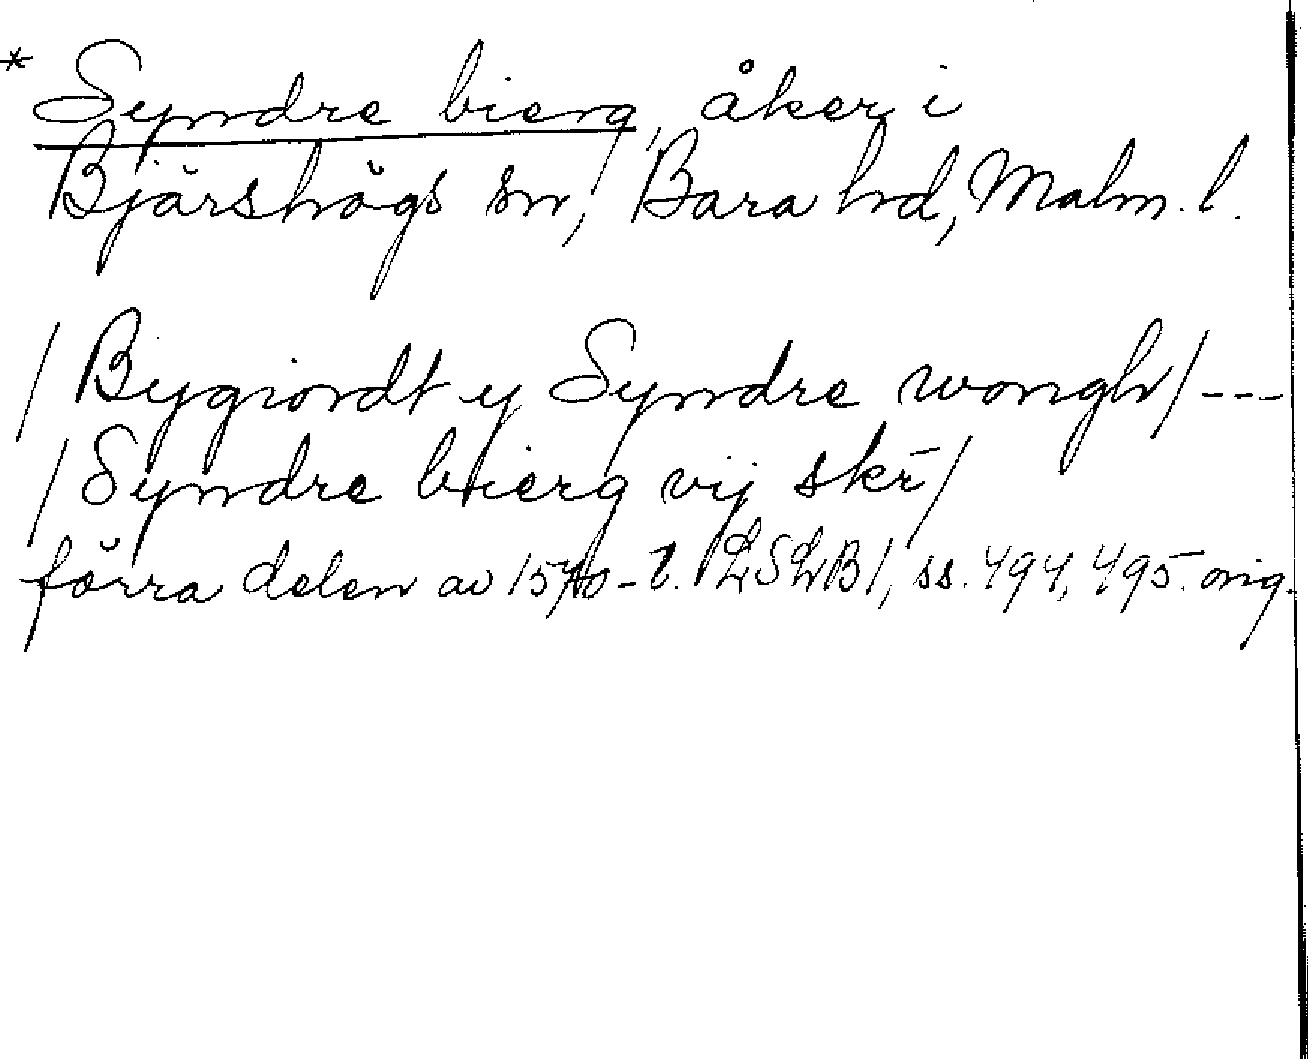 * Syndre bierg, åker i
Bjärshögs sn, Bara hd, Malm. l.
/ Bygiordt y Syndre wongh / ---
/ Syndre bierg vij skr /
förra delen av 1570-t. LSLB 1, ss. 494, 495. orig.